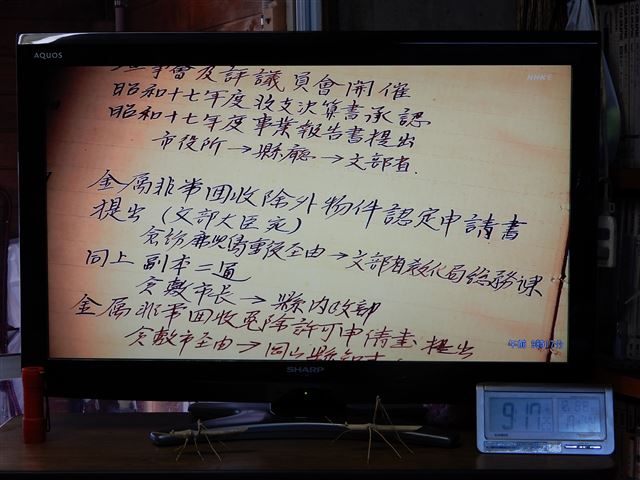 AQUOS
NHK E
理事會及評議員會開催
昭和十七年度收支決算書承認
昭和十七年度事業報告書提出
市役所→縣廳→文部省
金属非常回收除外物件認定申請書
提出(文部大臣宛)
→文部省教化局総務課
同上 副本二通
倉敷市長→縣内政部
金属非常回收免除許可申請書提出
倉敷市経由→
午前 9時17分
SHARP
917